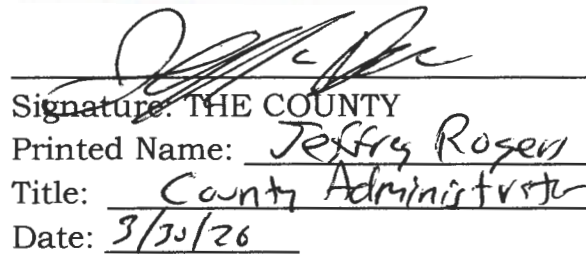 Signature: THE COUNTY
Printed Name: Jeffrey Rogers
Title: County Administrator
Date: 3/30/26